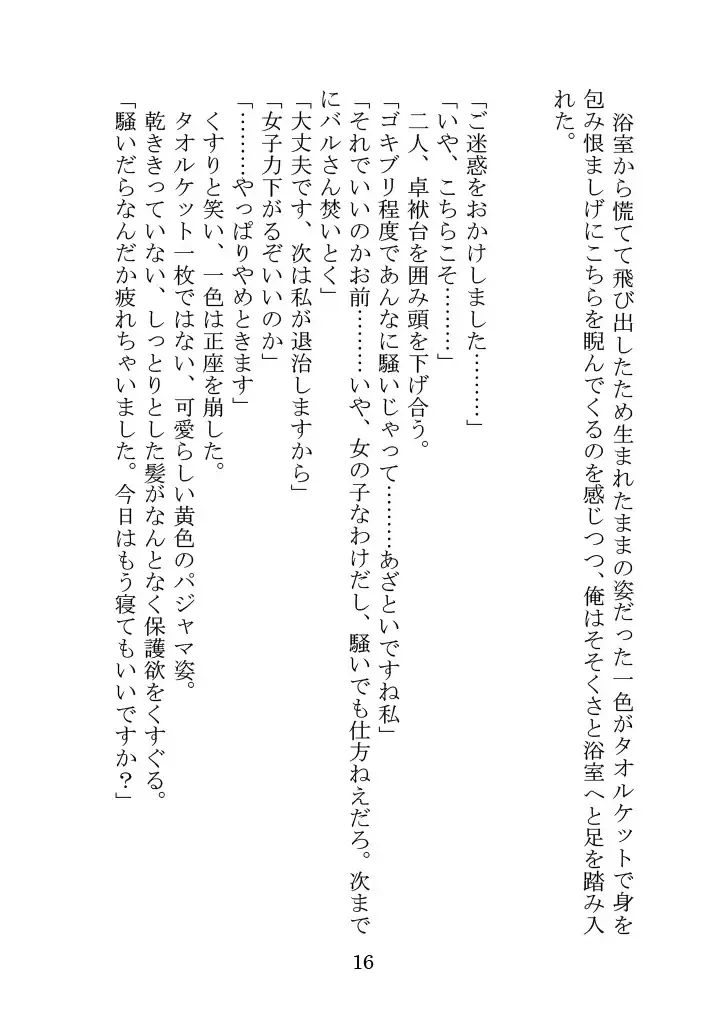 浴室から慌てて飛び出したため生まれたままの姿だった一色がタオルケットで身を
包み恨ましげにこちらを睨んでくるのを感じつつ、俺はそそくさと浴室へと足を踏み入
れた。
「ご迷惑をおかけしました………」
「いや、こちらこそ………」
　二人、卓袱台を囲み頭を下げ合う。
「ゴキブリ程度であんなに騒いじゃって………あざといですね私」
「それでいいのかお前………いや、女の子なわけだし、騒いでも仕方ねえだろ。次まで
にバルさん焚いとく」
「大丈夫です、次は私が退治しますから」
「女子力下がるぞいいのか」
「………やっぱりやめときます」
　くすりと笑い、一色は正座を崩した。
　タオルケット一枚ではない、可愛らしい黄色のパジャマ姿。
　乾ききっていない、しっとりとした髪がなんとなく保護欲をくすぐる。
「騒いだらなんだか疲れちゃいました。今日はもう寝てもいいですか？」
16